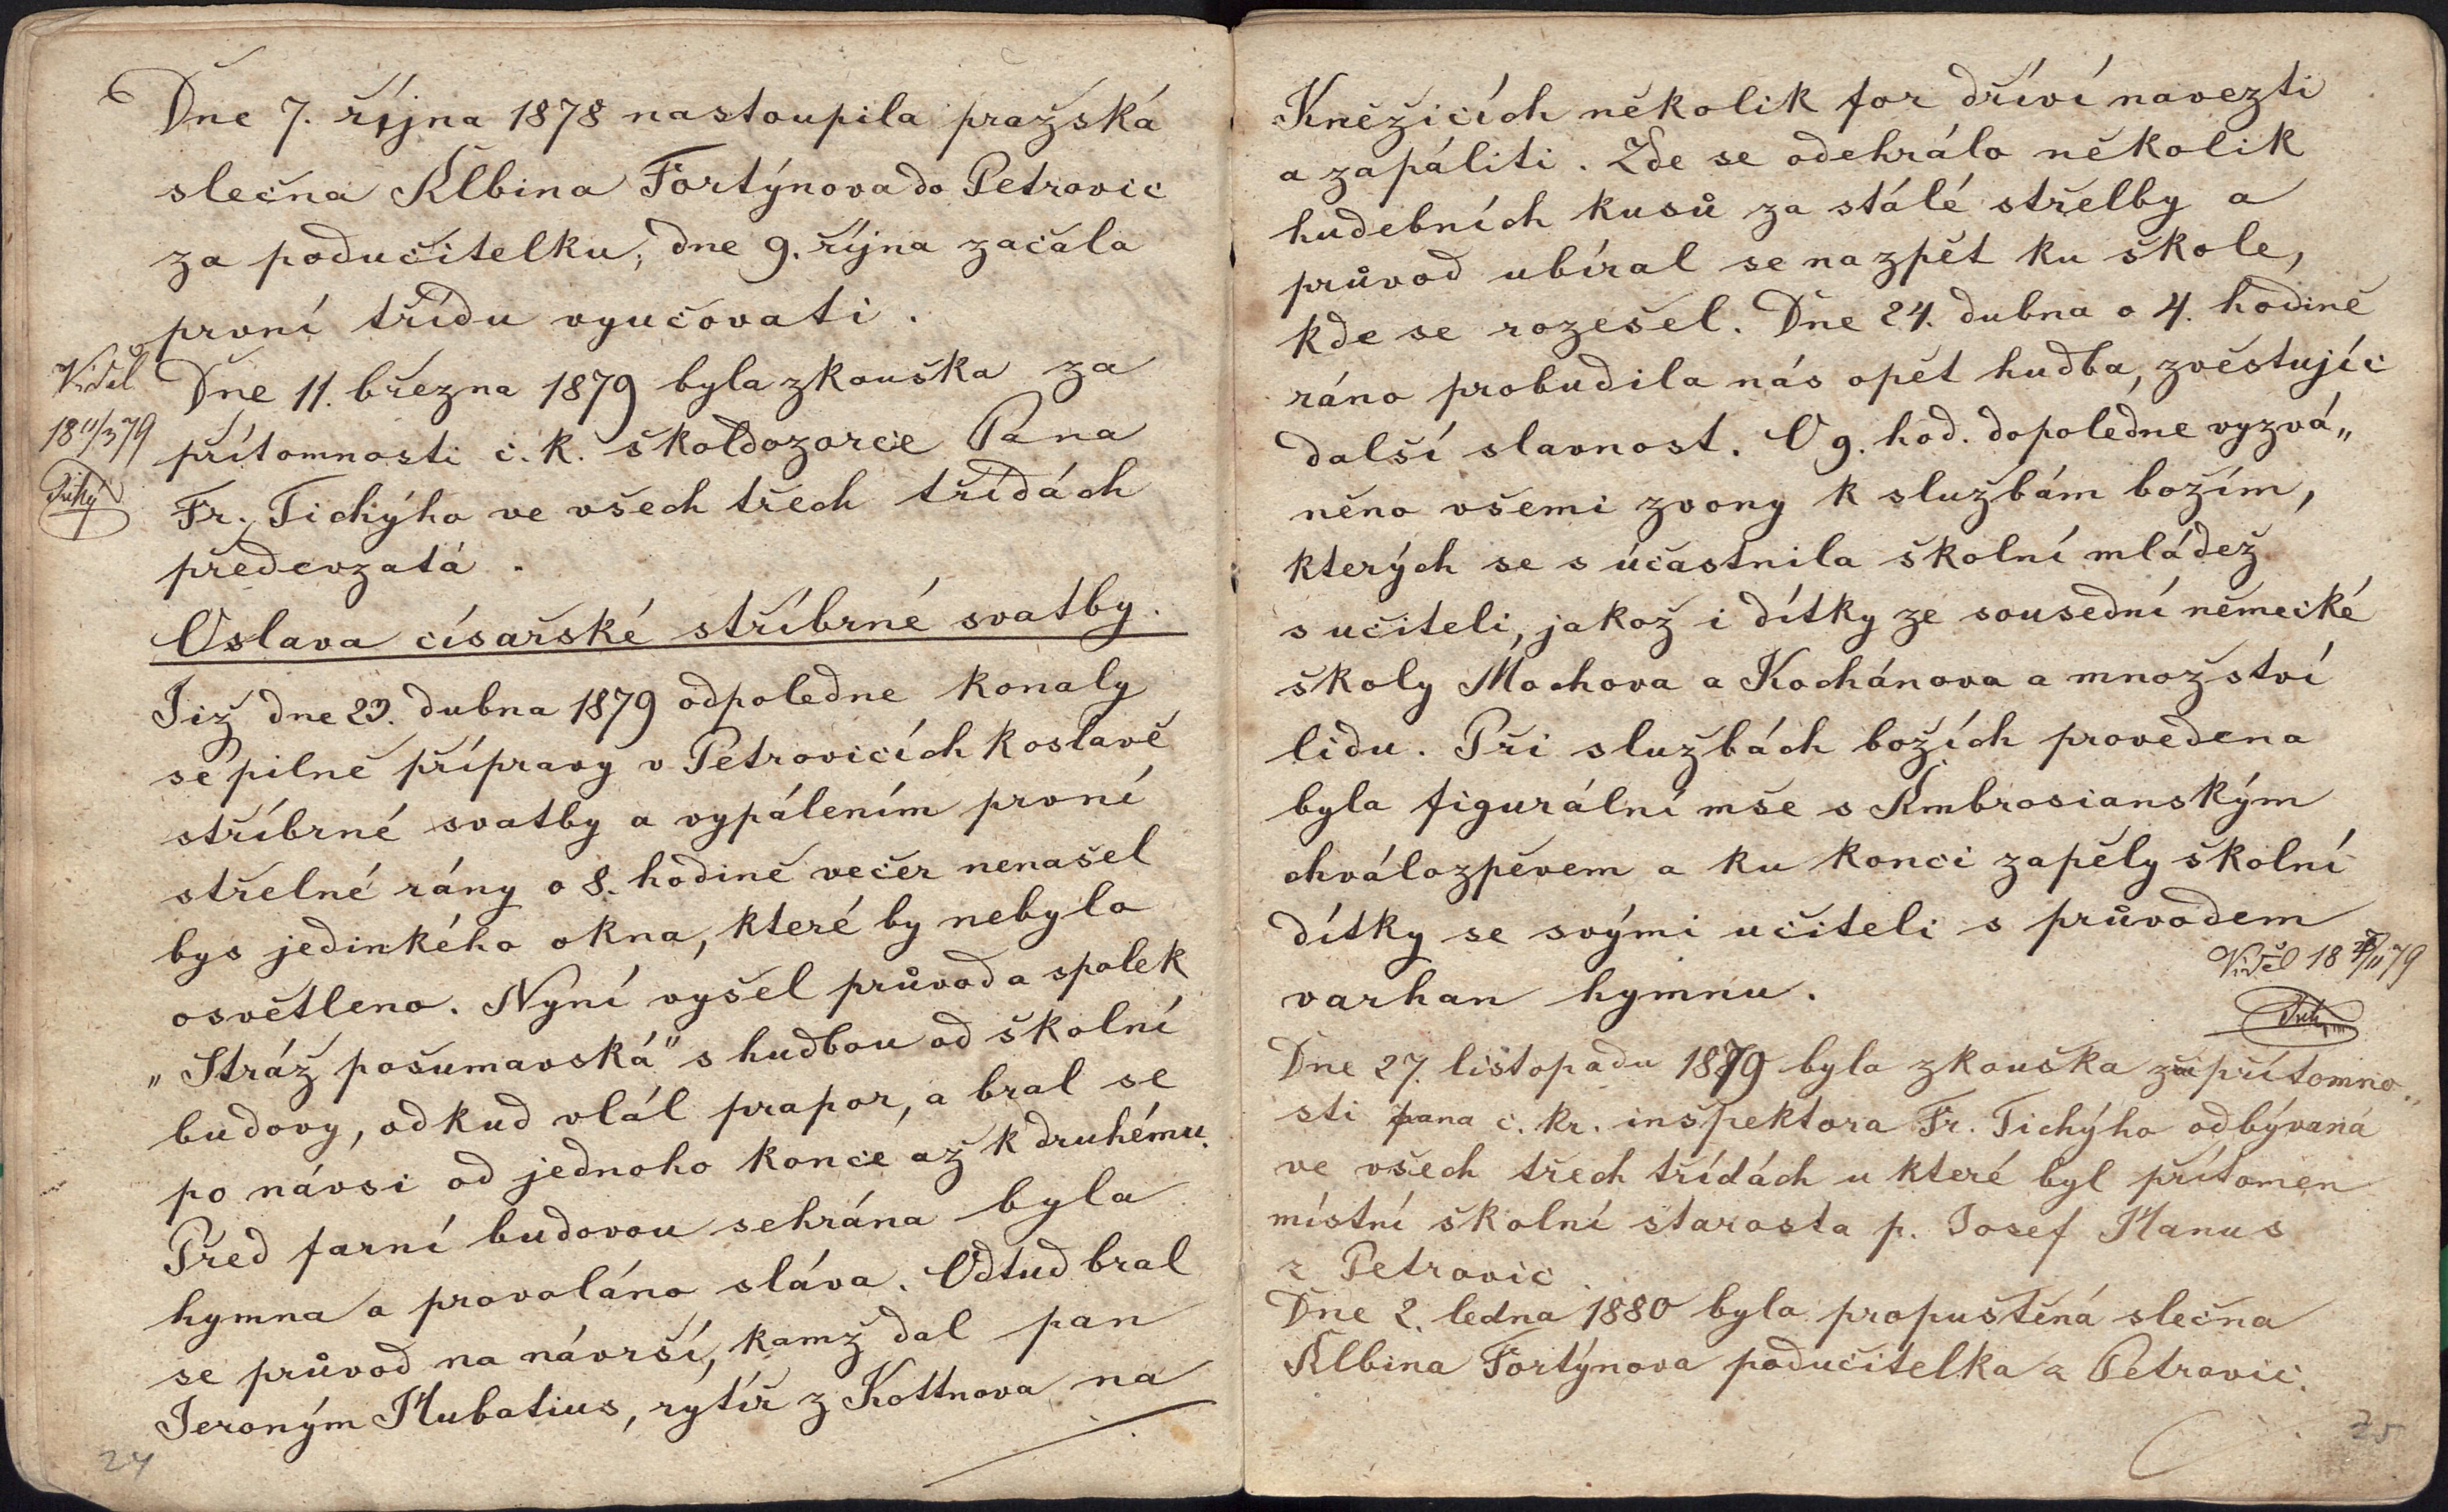 Dne 7. října 1878 nastoupila pražská
slečna Albina Fortýnova do Petrovic
za podučitelku, dne 9. října začala
první třídu vyučovati.
Viděl
18 11/3 79
Tichý
Dne 11. března 1879 byla zkouška za
přítomnosti c. k. školdozorce Pana
Fr. Tichýho ve všech třech třídách
předevzatá.
Oslava císařské stříbrné svatby.
Již dne 23. dubna 1879 odpoledne konaly
se pilně přípravy v Petrovicích k oslavě
stříbrné svatby a vypálením první
střelné rány o 8. hodině večer nenašel
bys jedinkého okna, které by nebylo
osvětleno. Nyní vyšel průvod a spolek
„Stráž pošumavská" s hudbou od školní
budovy, odkud vlál prapor, a bral se
po návsi od jednoho konce až k druhému.
Před farní budovou sehrána byla
hymna a provoláno sláva. Odtud bral
se průvod na návrší, kamž dal pan
Jeroným Hubatius, rytíř z Kottnova na
24
Kněžicích několik for dříví navezti
a zapáliti. Zde se odehrálo několik
hudebních kusů za stálé střelby a
průvod ubíral se nazpět ku škole,
kde se rozešel. Dne 24. dubna o 4. hodině
ráno probudila nás opět hudba, zvěstujíc
další slavnost. O 9. hod. dopoledne vyzvá„
něno všemi zvony k službám božím,
kterých se súčastnila školní mládež
s učiteli, jakož i dítky ze sousední německé
školy Mochova a Kochánova a množství
lidu. Při službách božích provedena
byla figurální mše s Ambrosianským
chválozpěvem a ku konci zapěly školní
dítky se svými učiteli s průvodem
varhan hymnu.
Viděl 18 /11 79
Dne 27. listopadu 1879 byla zkouška při přítomno„
sti pana c. kr. inspektora Fr. Tichýho odbývaná
ve všech třech třídách u které byl přítomen
místní školní starosta p. Josef Hanus
z Petrovic.
Dne 2. ledna 1880 byla propuštěná slečna
Albina Fortýnova podučitelka z Petrovic.
25